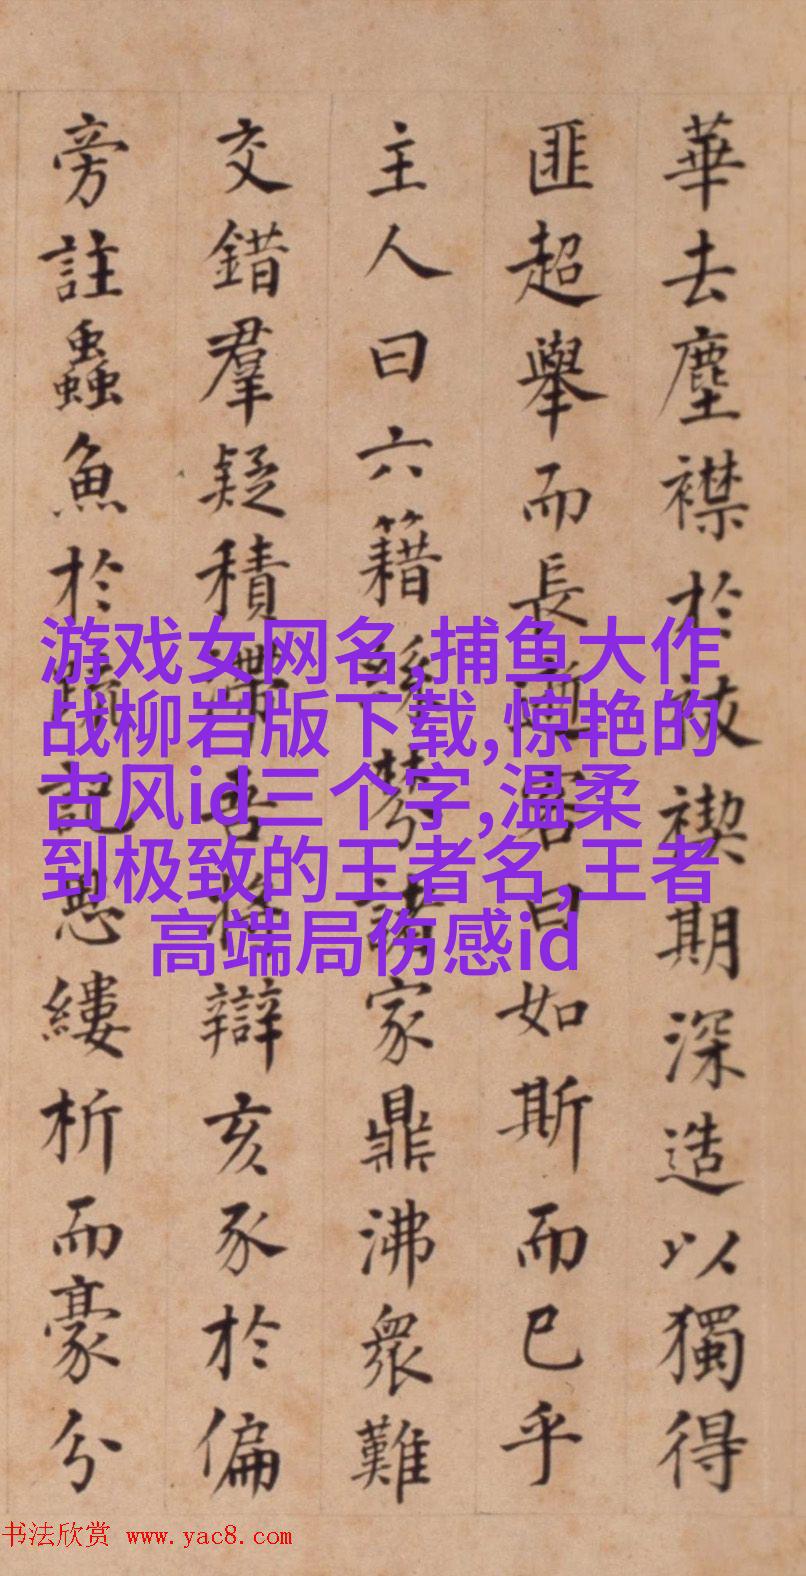 華去塵襟於祓禊期深造以獨得
匪超舉而長客曰如斯而已乎
主人曰六籍棼諸家鼎沸衆難
交錯羣疑積滯吾將辯亥豕於偏
旁註蟲魚於疏記思縷析而豪分
游戏女网名,捕鱼大作
战柳岩版下载,惊艳的
古风id三个字,温柔
到极致的王者名,王者
高端局伤感id
书法欣赏 www.yac8.com